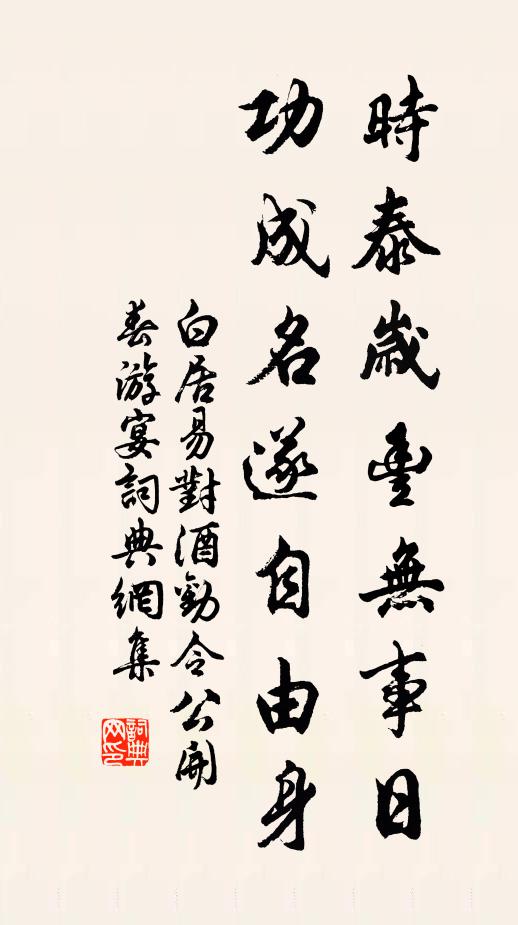 時泰歲豐無事日
功成名遂自由身
白居易對酒勸令公開
春游宴詞典網集
詞典
网印